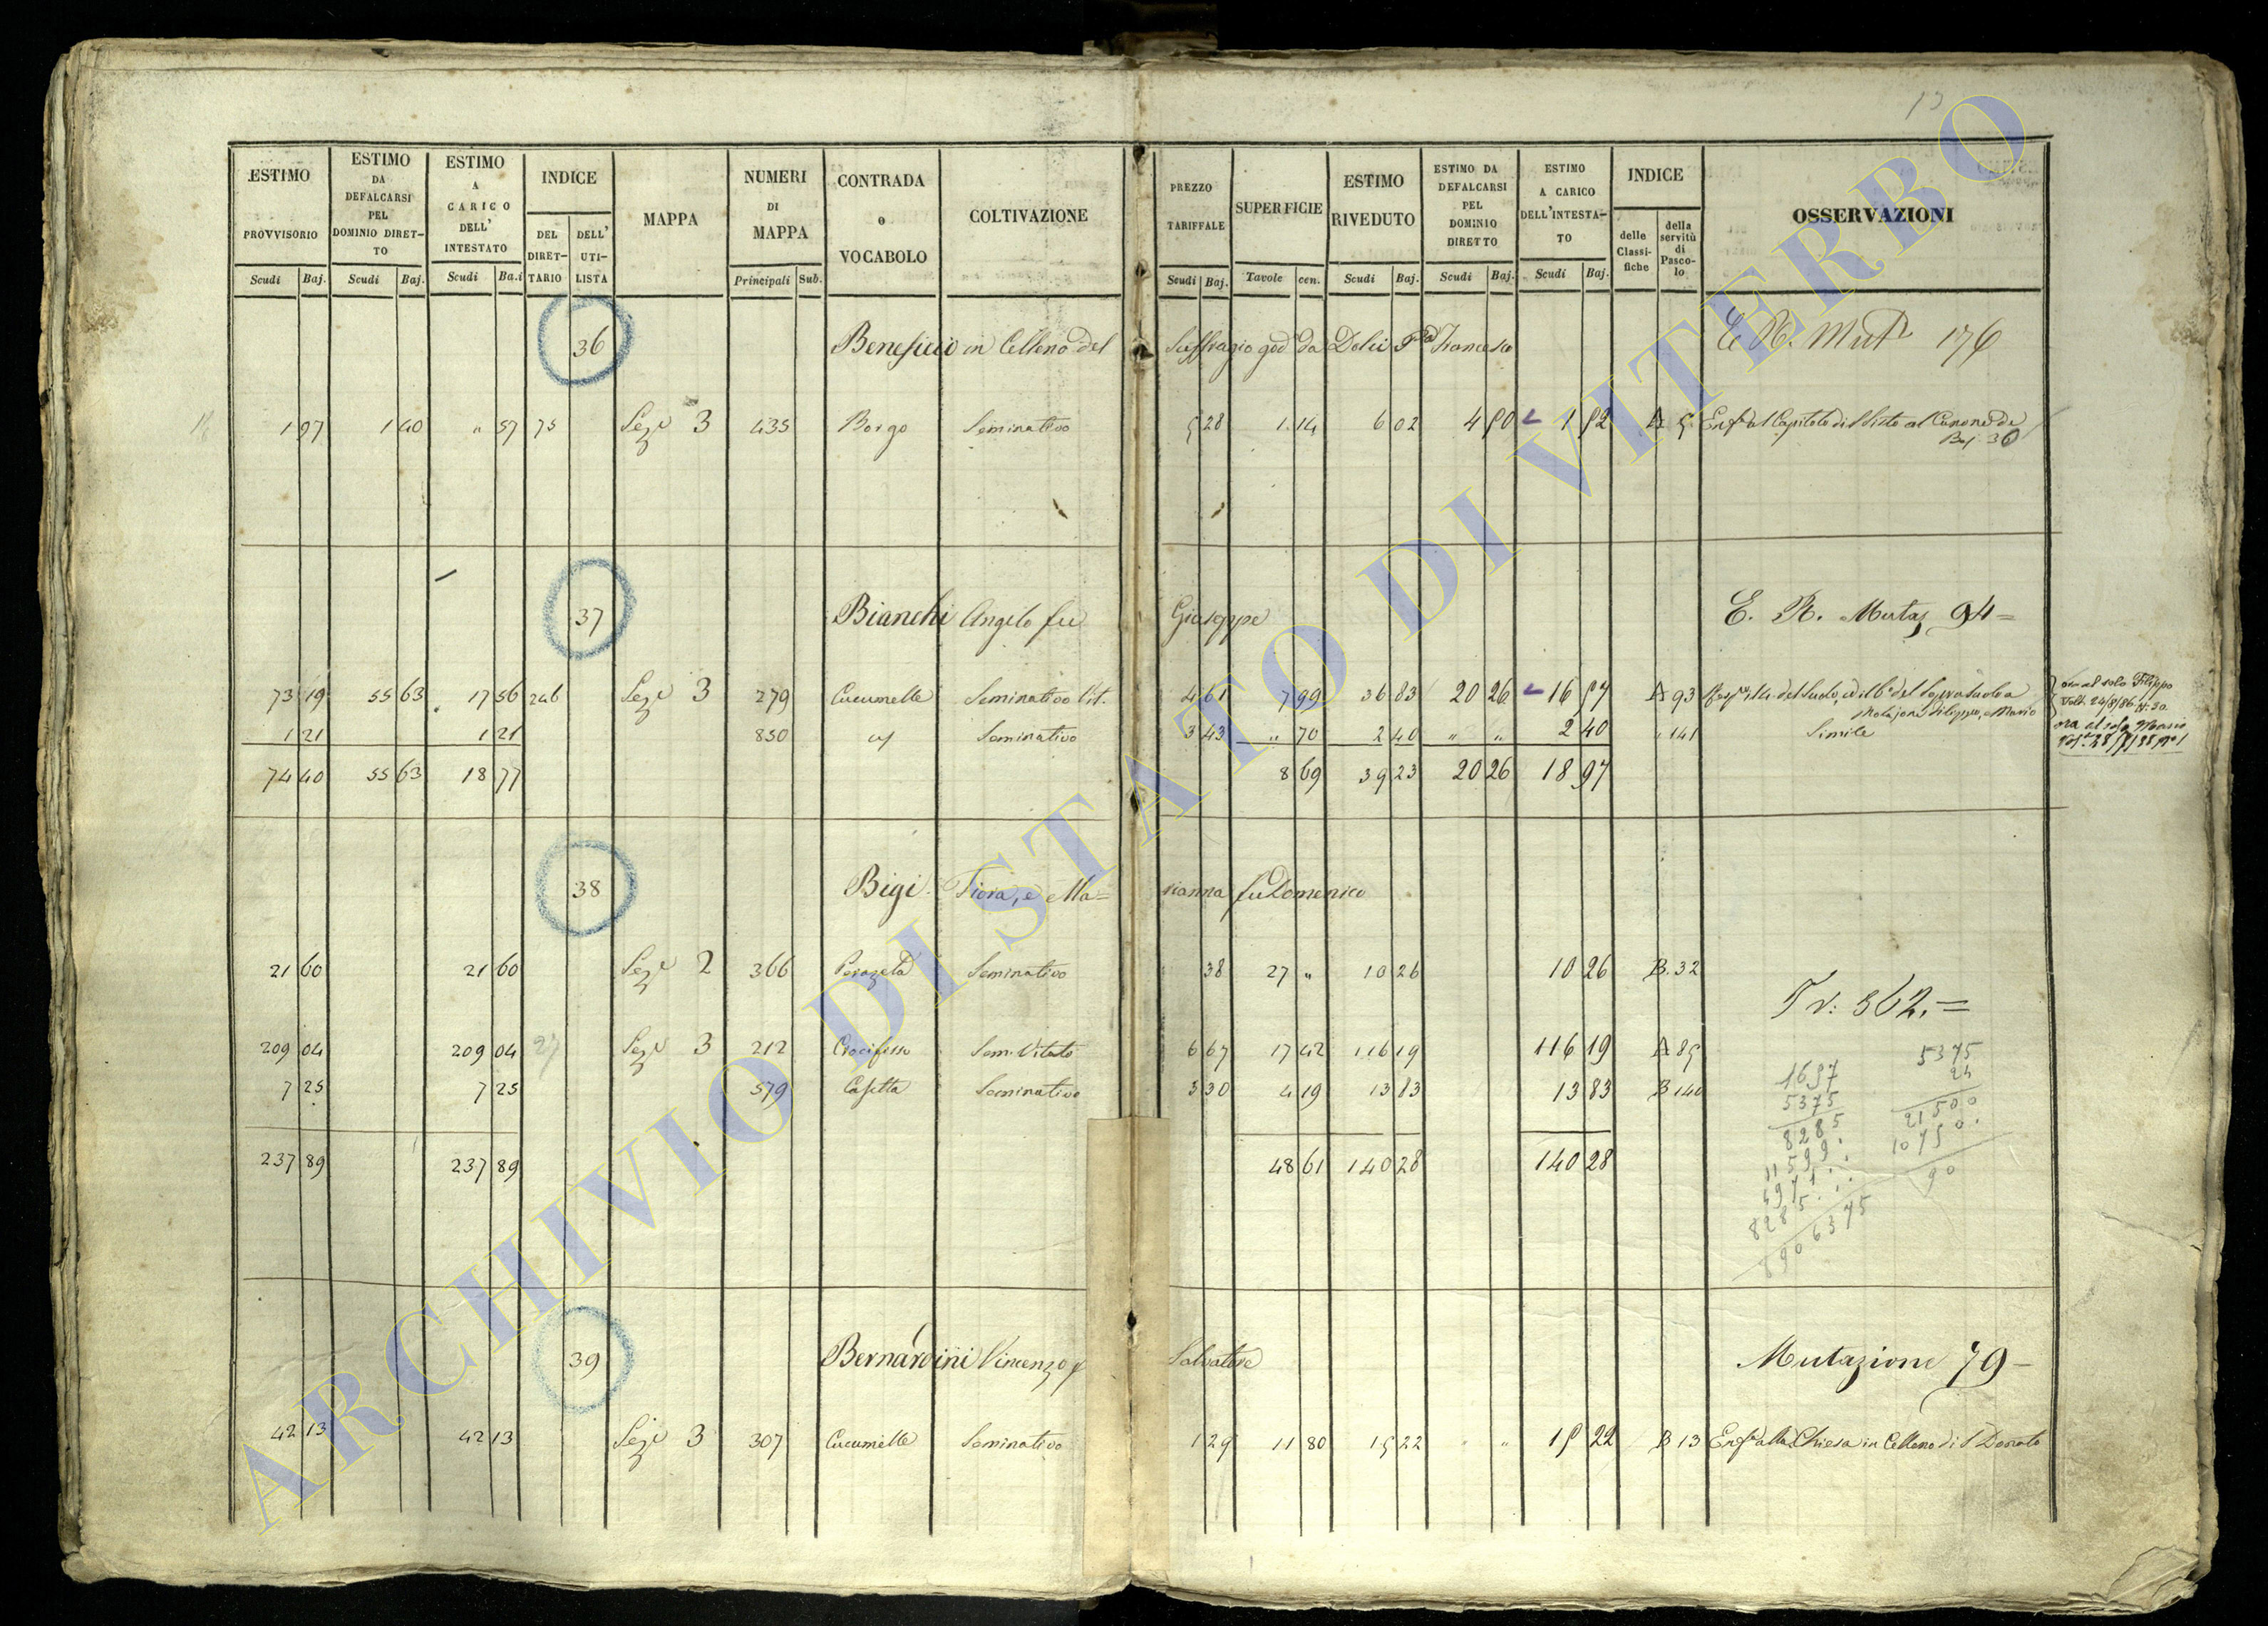 ESTIMO PROVVISORIO Scudi Baj.
ESTIMO DA DEFALCARSI PEL DOMINIO DIRET-TO Scudi Baj.
ESTIMO A CARICO DELL' INTESTATO Scudi Ba.i
INDICE DEL DIRET-TARIO DELL' UTI-LISTA
MAPPA
NUMERI DI MAPPA Principali Sub.
CONTRADA o VOCABOLO
COLTIVAZIONE
PREZZO TARIFFALE Scudi Baj.
SUPERFICIE Tavole cen.
ESTIMO RIVEDUTO Scudi Baj.
ESTIMO DA DEFALCARSI PEL DOMINIO DIRETTO Scudi Baj.
ESTIMO A CARICO DELL'INTESTA-TO Scudi Baj.
INDICE delle Classi-fiche della servitù di Pasco-lo
OSSERVAZIONI
36 Beneficio in Celleno del Suffragio god da Dolci Francesco 176
1 97 1 40 " 57 75 Sez 3 435 Borgo Seminativo 5 28 1 14 6 02 4 50 1 52 A 5 Enf al Capitolo di S Sisto al Canone di Baj 30
37 Bianchi Angelo fu Giuseppe E. R. Mutaz 94 =
73 19 55 63 17 56 246 Sez 3 279 Cucumelle Seminativo Vit. 4 61 7 99 36 83 20 26 16 57 A 93 del Suolo, ed del Soprasuolo a Filippo, e Mario
ora al solo Filippo
1 21 1 21 850 Seminativo 3 43 " 70 2 40 " " 2 40 " 141 Simile
ora al solo Mario
74 40 55 63 18 77 8 69 39 23 20 26 18 97
38 Bigi Fiora, e Ma= rianna fu Domenico
21 60 21 60 Sez 2 366 Seminativo 38 27 " 10 26 10 26 B. 32
562. =
209 04 209 04 27 Sez 3 212 Crocifisso Sem. Vitato 6 67 17 42 116 19 116 19 A 85
7 25 7 25 579 Casetta Seminativo 3 30 4 19 13 83 13 83 B 140
237 89 237 89 48 61 140 28 140 28
5375
24
21500
1075 0
90
1697
5375
8285
8285
39 Bernardini Vincenzo Salvatore Mutazione 79 -
42 13 42 13 Sez 3 307 Cucumelle Seminativo 1 29 11 80 15 22 " " 15 22 B 13 Enf alla Chiesa in Celleno di S Donato
ARCHIVIO DI STATO DI VITERBO